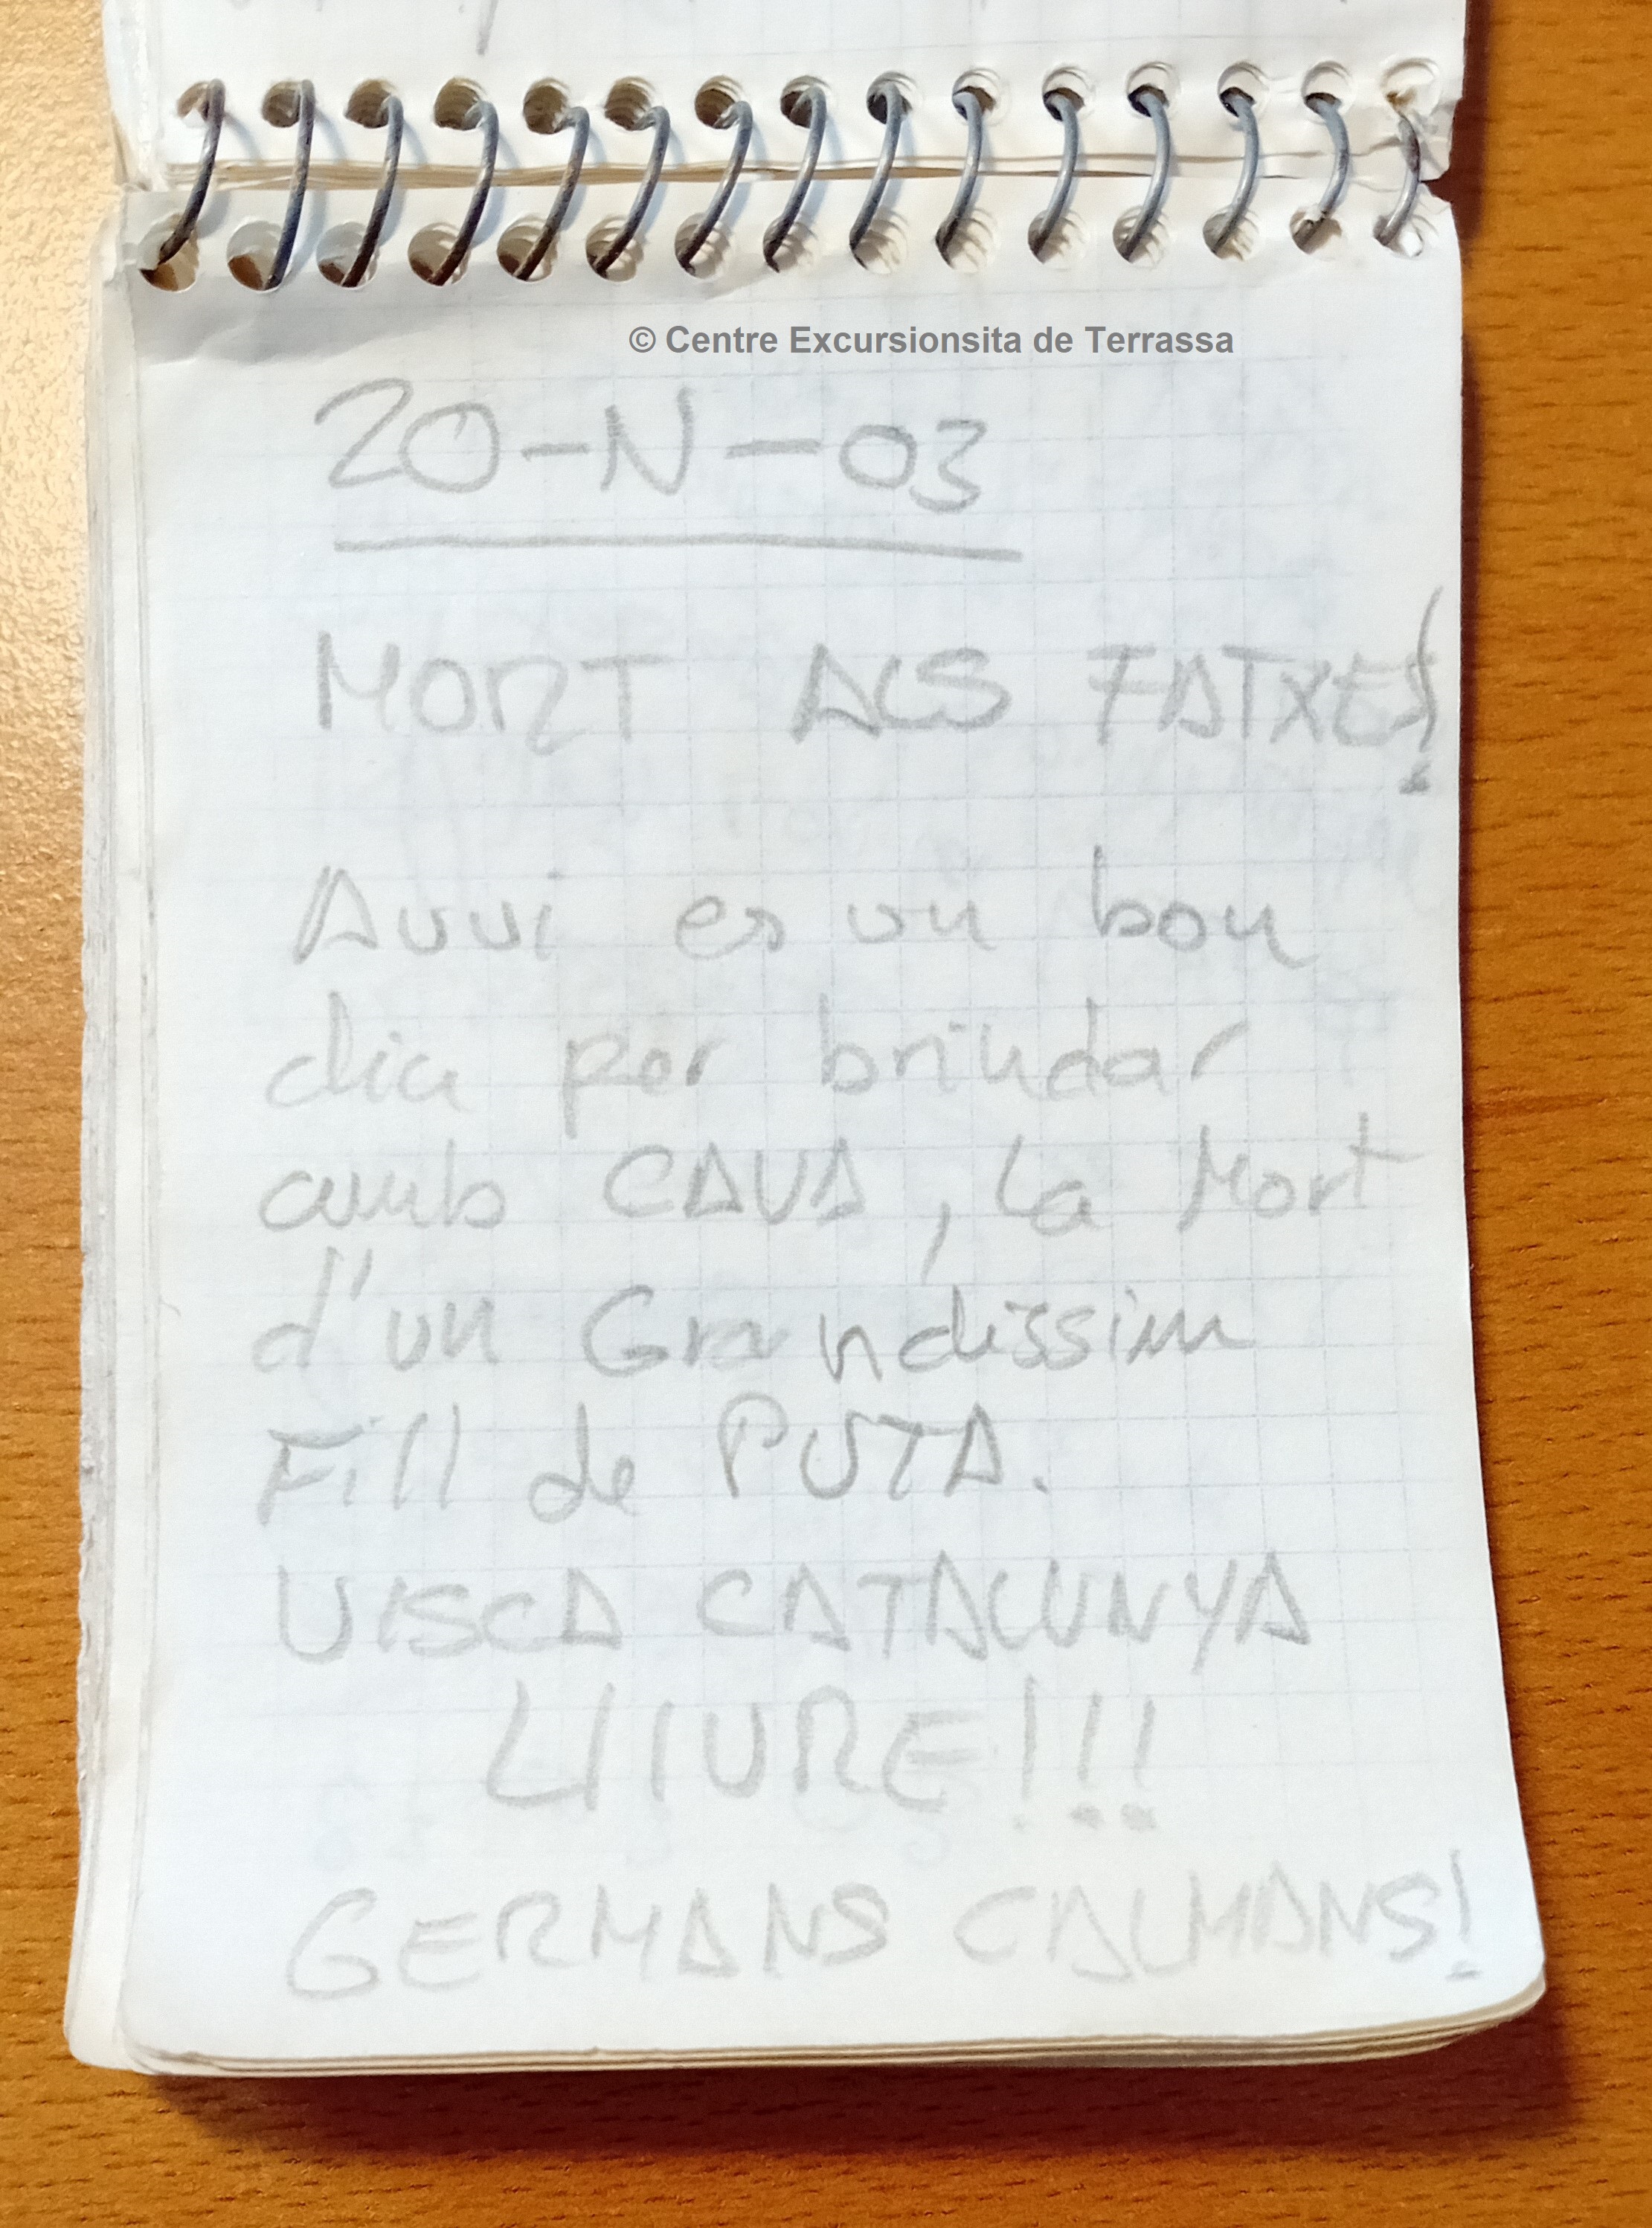 © Centre Excursionsita de Terrassa
20-N-03
MORT ALS FATXES!
Avui es un bon
dia per brindar
amb CAVA, La Mort
d'un Grandissim
Fill de PUTA.
VISCA CATALUNYA
LLIURE!!!
GERMANS CALMANS!